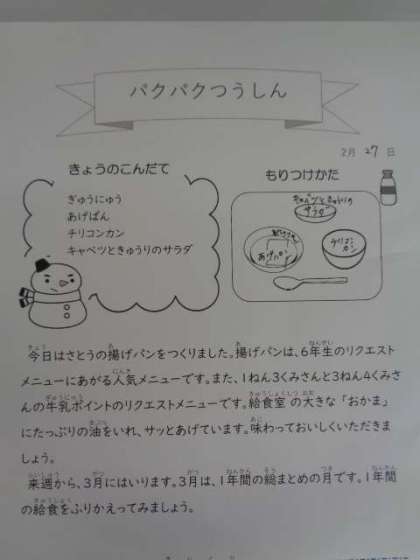 パクパクつうしん
2月 27 日
きょうのこんだて
ぎゅうにゅう
あげぱん
チリコンカン
キャベツときゅうりのサラダ
もりつけかた
キャベツときゅうりの
サラダ
あげパン
チリコン
カン
今日はさとうの揚げパンをつくりました。揚げパンは、6年生のリクエスト
メニューにあがる人気メニューです。また、1ねん3くみさんと3ねん4くみさ
んの牛乳ポイントのリクエストメニューです。給食室の大きな「おかま」
にたっぷりの油をいれ、サッとあげています。味わっておいしくいただきま
しょう。
来週から、3月にはいります。3月は、1年間の総まとめの月です。1年間
の給食をふりかえってみましょう。